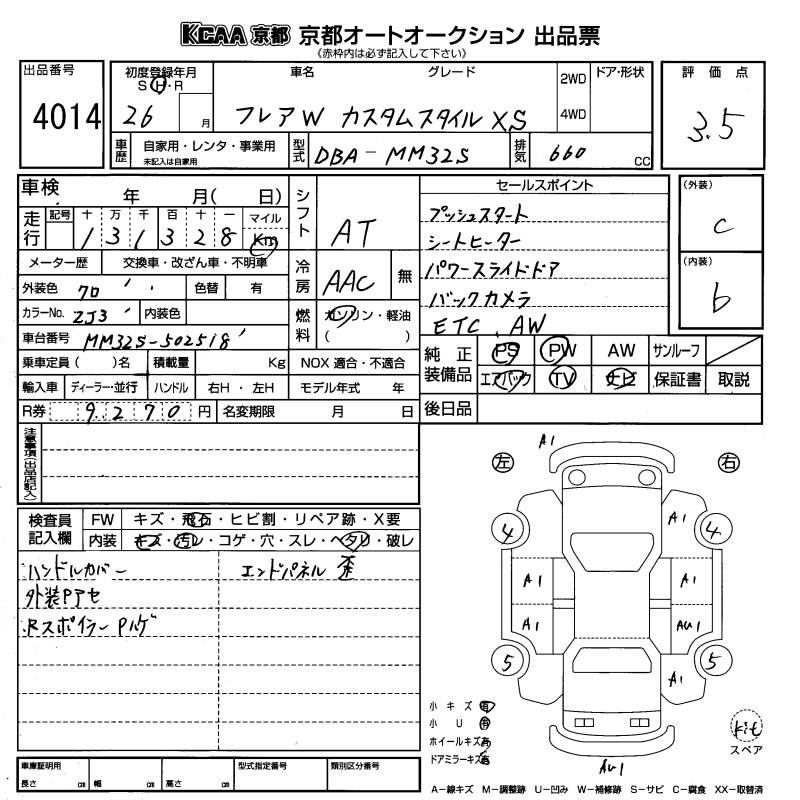 KCAA 京都 京都オートオークション 出品票
(赤枠内は必ず記入して下さい)
出品番号
4014
初度登録年月
S・H・R
26 月
車名 グレード
フレアW カスタムスタイル XS
2WD
4WD
ドア・形状
評価点
3.5
車歴
自家用・レンタ・事業用
未記入は自家用
型式
DBA-MM32S
排気
660 CC
車検 年 月( 日)
走行
記号 十 万 千 百 十 一 マイル
131328 Km
シフト
AT
メーター歴 交換車・改ざん車・不明車
外装色 クロ 色替 有
冷房
AAC 無
カラーNo. ZJ3 内装色
燃料
ガソリン・軽油
( )
車台番号 MM32S-502518
乗車定員( )名 積載量 Kg NOX 適合・不適合
輸入車 ディーラー・並行 ハンドル 右H・左H モデル年式 年
R券 9270 円 名変期限 月 日
セールスポイント
プッシュスタート
シートヒーター
パワースライドドア
バックカメラ
ETC、AW
(外装)
C
(内装)
b
純正装備品
PS PW AW サンルーフ
エアバック TV ナビ 保証書 取説
後日品
注意事項(出品店記入)
検査員記入欄
FW キズ・飛石・ヒビ割・リペア跡・X要
内装 キズ・汚レ・コゲ・穴・スレ・ヘタリ・破レ
ハンドルカバー
エンドパネル 歪
外装Pアセ
Rスポイラー Pハゲ
左 右
A1
A1
4 4
A1 A1
A1 AU1
5 5
A1
AU1
小キズ 有
小U 有
ホイールキズ 有
ドアミラーキズ 有
Kit
スペア
車庫証明用
長さ cm 幅 cm 高さ cm
型式指定番号 類別区分番号
A-線キズ M-調整跡 U-凹み W-補修跡 S-サビ C-腐食 XX-取替済